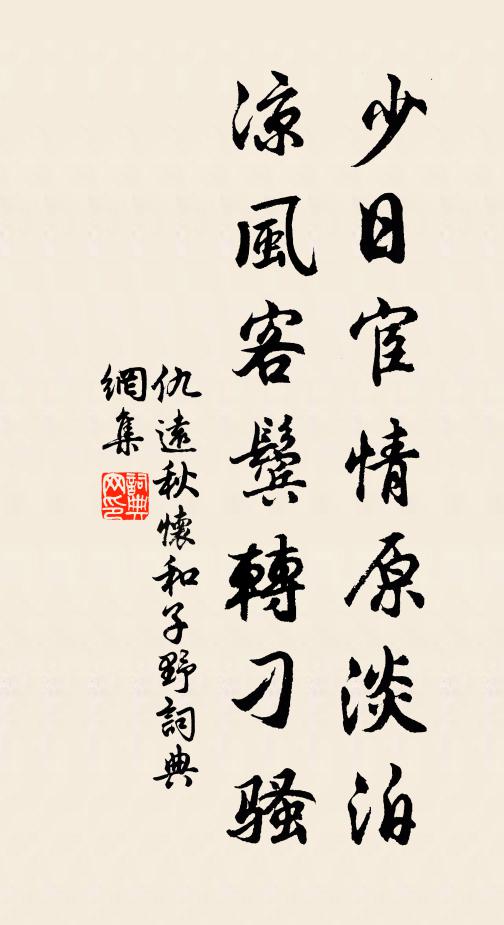 少日宦情原淡泊
涼風客鬢轉刁騷
仇遠秋懷和子野詞典
網集
詞典
网印